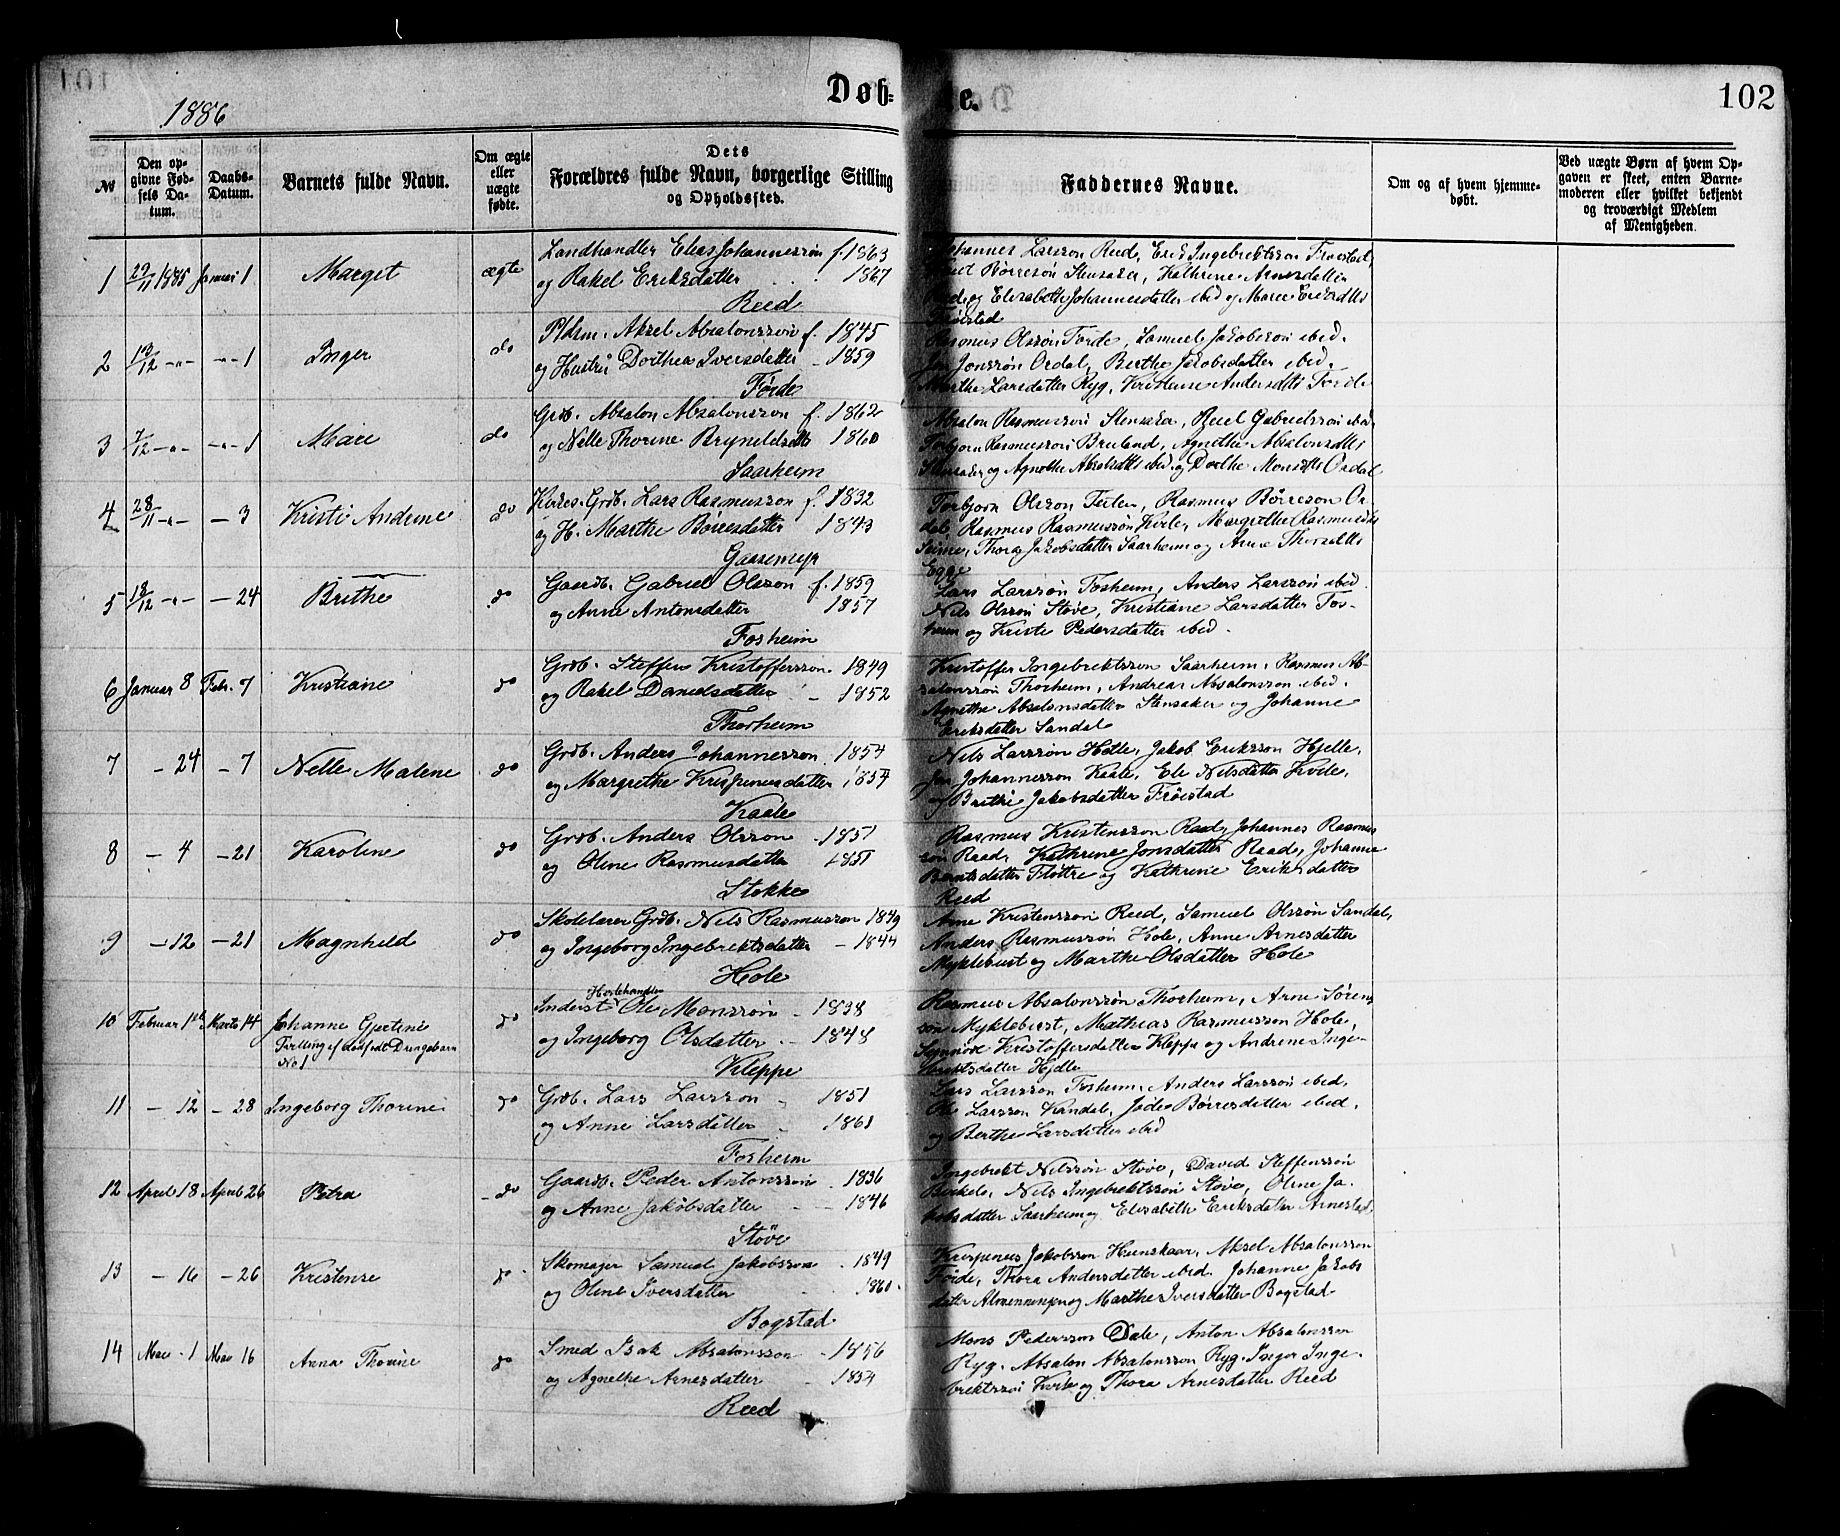 1886
Døb=
te.
102
№
Den opgivne Fødsels Datum.
Daabs-Datum.
Barnets fulde Navn.
Om ægte eller uægte fødte.
Dets Forældres fulde Navn, borgerlige Stilling og Opholdssted.
Faddernes Navne.
Om og af hvem hjemmedøbt.
Ved uægte Børn af hvem Opgaven er skeet, enten Barnemoderen eller hvilket bekjendt og troværdigt Medlem af Menigheden.
1 1885 Januari 1 Marget ægte
Landhandler Elias Johannessøn f. 1863
og Rakel Eriksdatter 1867
Reed
Johannes Larsson Reed, Erik Ingebrektsson Frøistad,
Børresøn Stensaker, Kathrine Arnesdatter
Reed og Elisabeth Johannesdatter ibid og Marie
Frøistad
2 1 Inger do
Pldsm. Aksel Absalonssøn f. 1845
og Hustru Dorthea Iversdatter 1859
Førde
Rasmus Olssøn Førde, Samuel Jakobsson ibid.
Jonssøn Ordal, Berthe Jakobsdatter ibid.
Marthe Larsdatter Ryg, Kristense Andersdtr Førde
3 7/12 1 Marie do
Grdb. Absalon Absalonssøn f. 1862
og Nelle Thorine Bryneldsdtr 1860
Saarheim
Absalon Rasmussøn Stensaker, Reiel Gabrielssøn ibid.
Torbjørn Rasmussøn Bruland, Agnethe Absalonsdtr
Stensaker og Agnethe ibid og Dorthe Monsdtr Ordal
4 28/11 3 Kristi Andrine do
Grdb. Lars Rasmusson f. 1832
og H. Marthe Børresdatter 1843
Gaasemyr
Torbjørn Olsson Rasmus Børreson Or-
dal, Rasmus Rasmussøn Kvile, Margrethe Rasmusdtr
Seime, Thora Jakobsdatter Saarheim og Anne Thorsdtr
Egge
5 24 Brithe do
Gaardb. Gabriel Olsson f. 1859
og Anne Antonsdatter 1857
Fosheim
Lars Larssøn Fosheim, Anders Larssøn ibid.
Nils Olssøn Støve, Kristiane Larsdatter Fos-
heim og Kristi Pedersdatter ibid.
6 Januar 8 Febr. 7 Kristiane do
Grdb. Steffen Kristoffersson 1849
og Rakel Danielsdatter 1852
Thorheim
Kristoffer Ingebrektsson Saarheim, Rasmus Ab-
salonssøn Thorheim, Andreas Absalonsson ibid.
Agnethe Absalonsdatter Stensaker og Johanne
Eriksdatter Sandal
7 - 24 - 7 Nelle Malene do
Grdb. Anders Johannesson 1854
og Margrethe Krispinusdatter 1854
Kaale
Nils Larssøn Hetle, Jakob Eriksson Hjelle,
Johannesson Kaale, Eli Nilsdatter Kvile,
og Brithe Jakobsdatter Frøistad
8 - 4 - 21 Karoline do
Grdb. Anders Olsson 1851
og Oline Rasmusdatter 1851
Stokke
Rasmus Kristensson Raad, Johannes Rasmus
søn Raad, Kathrine Jonsdatter Raade, Johanne
Berntsdatter Fløtre og Kathrine Eriksdatter
Reed
9 - 12 - 21 Magnhild do
Skolelærer Grdb. Nils Rasmusson 1849
og Ingeborg Ingebrektsdatter 1844
Hole
Arne Kristenssøn Reed, Samuel Olssøn Sandal,
Anders Rasmussøn Hole, Anne Arnesdatter
Myklebust og Marthe Olsdatter Hole
10 Februar 1 Marts 14 Johanne Gjertine do
Tvilling af dødfødt Drengebarn
No 1
Hestehandler
Inderst Ole Monssøn 1838
og Ingeborg Olsdatter 1848
Kleppe
Rasmus Absalonssøn Thorheim, Arne Sørens
søn Myklebust, Mathias Rasmusson Hole,
Kristoffersdatter Kleppe og Andrine Inge-
brektsdatter Hjelle
11 - 12 - 28 Ingeborg Thorine do
Grdb. Lars Larsson 1851
og Anne Larsdatter 1861
Fosheim
Lars Larsson Fosheim, Anders Larssøn ibid,
Ole Larsson Kandal, Børresdatter ibid,
og Berthe Larsdatter ibid
12 April 18 April 26 Petra do
Gaardb. Peder Antonssøn 1836
og Anne Jakobsdatter 1846
Støve
Ingebrekt Nilssøn Støve, David Steffenssøn
Birkelo, Nils Ingebrektssøn Støve, Oline Ja-
kobsdatter Saarheim og Elisabeth Eriksdatter Arnestad
13 - 16 - 26 Kristense do
Skomager Samuel Jakobsson 1849
og Oline Iversdatter 1860
Bogstad
Krispinus Jakobsson Hunskaar, Aksel Absalonsson
Førde, Thora Andersdatter ibid. Johanne Jakobs
datter Almenningen og Marthe Iversdatter Bogstad
14 Mai 1 Mai 16 Anna Thorine do
Smed Isak Absalonsson 1856
og Agnethe Arnesdatter 1854
Reed
Mons Pedersson Dale, Anton Absalonsson
Ryg. Absalon Absalonsson Ryg. Inger Inge-
brektssøn Kvile og Thora Arnesdatter Reed